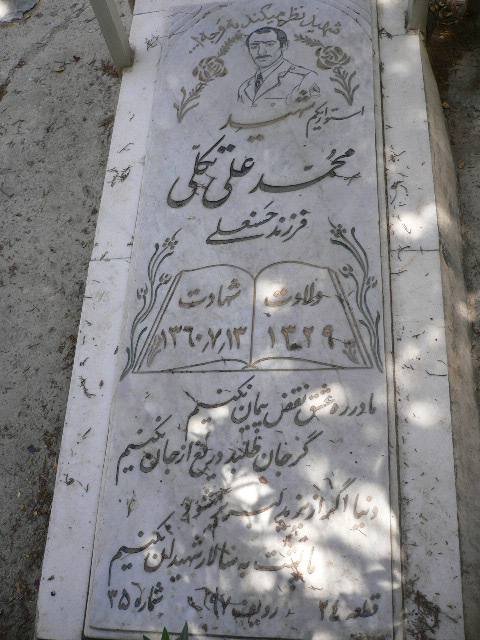 شهید نظر میکند به وجه الله
استواریکم
شهید
محمد علی تجلی
فرزند حسنعلی
ولادت شهادت
۱۳۲۹ ۱۳۶۰/۷/۱۳
ما در ره عشق نقض پیمان نکنیم
گر جان طلبد دریغ از جان نکنیم
دنیا اگر از یزید لبریز شود
ما پشت به سالار شهیدان نکنیم
قطعه ۲۴ ردیف شماره ۳۵